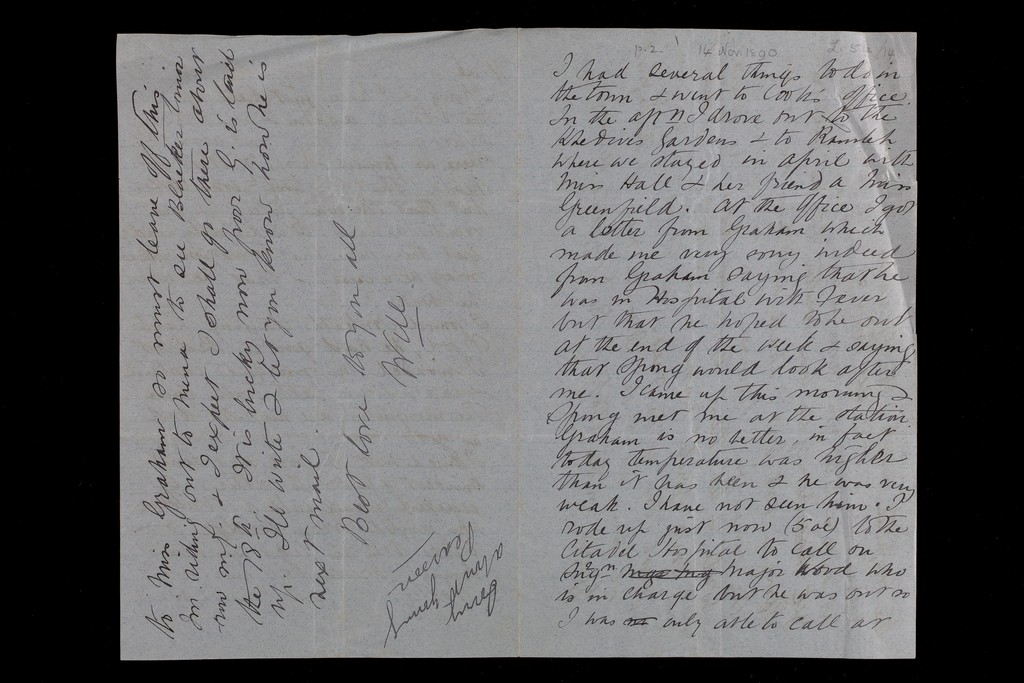 p.2 14 Nov. 1890
I had several things to do in
the town & went to Cook's office.
In the aftn I drove out to the
Khedives Gardens & to Ramleh
where we stayed in April with
Miss Hall & her friend a Miss
Greenfield. At the office I got
a letter from Graham which
made me very sorry indeed
from Graham saying that he
was in Hospital with Fever
but that he hoped to be out
at the end of the week & saying
that Spong would look after
me. I came up this morning &
Spong met me at the station.
Graham is no better, in fact
today temperature was higher
than it has been & he was very
weak. I have not seen him. I
rode up just now (5 oc) to the
Citadel Hospital to call on
Surgn Major Wood who
is in charge but he was out so
I was only able to call at
to Miss Graham so must leave off this
I'm riding out to Mena to see Blaeker Omar
now mg. & I expect I shall go there about
the 18th. It is lucky now poor G. is laid
up. I'll write & let you know how he is
next mail.
Best love to you all
Will